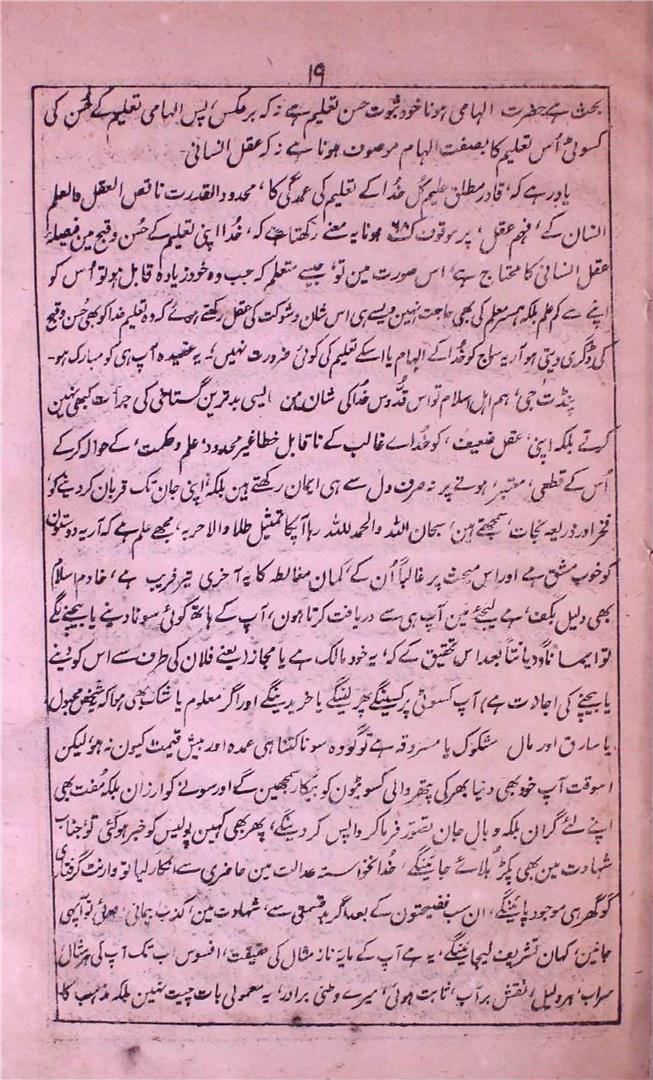 ۱۹
بحث ہے حضرت الہامی ہونا خود ثبوت حسن تعلیم ہے نہ کہ برعکس، پس الہامی تعلیم کے حُسن کی
کسوٹی اُس تعلیم کا بصفت الہام موصوف ہونا ہے نہ کہ عقل انسانی۔
یاد رہے کہ، قادر مطلق علیم کُل خُدا کے تعلیم کی عمدگی کا، محدود القدرت ناقص العقل والعلم
انسان کے، فہم عقل، پر موقوف ہونا یہ معنے رکھتا ہے کہ، خُدا اپنی تعلیم کے حُسن و قبح مین فیصلۂ
عقل انسانی کا محتاج ہے، اس صورت مین تو، جیسے متعلم کہ جب وہ خود زیادہ قابل ہو تو اُس کو
اپنے سے کم علم بلکہ ہمسر معلم کی بھی حاجت نہین ویسے ہی اس شان و شوکت کی عقل رکھتے ہوئے کہ وہ تعلیم خدا کو بھی حُسن و قبح
کی ڈگری دیتی ہو آریہ سماج کو خُدا کے الہام یا اسکے تعلیم کی کوئی ضرورت نہین؛۔ یہ عقیدہ آپ ہی کو مبارک ہو۔
پنڈت جی، ہم اہل اسلام تو اس قدّوس خُدا کی شان مین ایسی بدترین گستاخی کی جرأت کبھی نہین
کرتے بلکہ اپنی، عقل ضعیف، کو خُداے غالب کے ناقابل خطا غیر محدود، علم و حکمت، کے حوالہ کر کے
اُس کے قطعی، معتبر، ہونے پر نہ صرف دل سے ہی ایمان رکھتے ہین بلکہ، اپنی جان تک قربان کر دینے کو
فخر اور ذریعہ نجات، سمجھتے ہین، سبحان اللہ والحمد للہ رہا آپکا تمثیل طلا والا حربہ، مجھے علم ہے کہ آریہ دوستون
کو خوب مشق ہے اور اس مبحث پر غالباً اُن کے، کمان مغالطہ کا یہ آخری تیر فریب ہے، خادم اسلام
بھی دلیل بکف، ہے لیجئے مین آپ ہی سے دریافت کرتا ہون، آپ کے ہاتھ کوئی سونا دینے یا بیچنے لگے
تو ایمانا و دیانتاً بعد اس تحقیق کے کہ، یہ خود مالک ہے یا مجاز (یعنے فلان کی طرف سے اس کو دینے
یا بیچنے کی اجازت ہے) آپ کسوٹی پر کسینگے پھر لینگے یا خریدینگے اور اگر معلوم یا شک بھی ہوا کہ شخص مجہول
یا سارق اور مال مشکوک یا مسروقہ ہے تو گو وہ سونا کتنا ہی عمدہ اور بیش قیمت کیون نہ ہو لیکن
اسوقت آپ خود بھی دنیا بھر کی پتھر والی کسوٹیون کو بیکار سمجھین گے اور سونے کو ارزان بلکہ مُفت بھی
اپنے لئے گران بلکہ وبال جان تصوّر فرما کر واپس کر دینگے، پھر بھی کہین پولیس کو خبر ہو گئی تو جناب
شہادت مین بھی پکڑ بُلائے جائینگے، خُدانخواستہ عدالت مین حاضری سے انکار کیا تو وارنٹ گرفتاری
کو گھر ہی موجود پائینگے، ان سب فضیحتون کے بعد اگر بدقسمتی سے، شہادت مین، کذب بیانی، ہوئی تو آپ ہی
جانین، کہان تشریف لیجائینگے، یہ ہے آپ کے مایۂ ناز مثال کی حقیقت، افسوس اب تک آپ کی ہر مثال
سراب، ہر دلیل، نقش بر آب، ثابت ہوئی، میرے وطنی برادر، یہ معمولی بات چیت نہین بلکہ مذہب کا